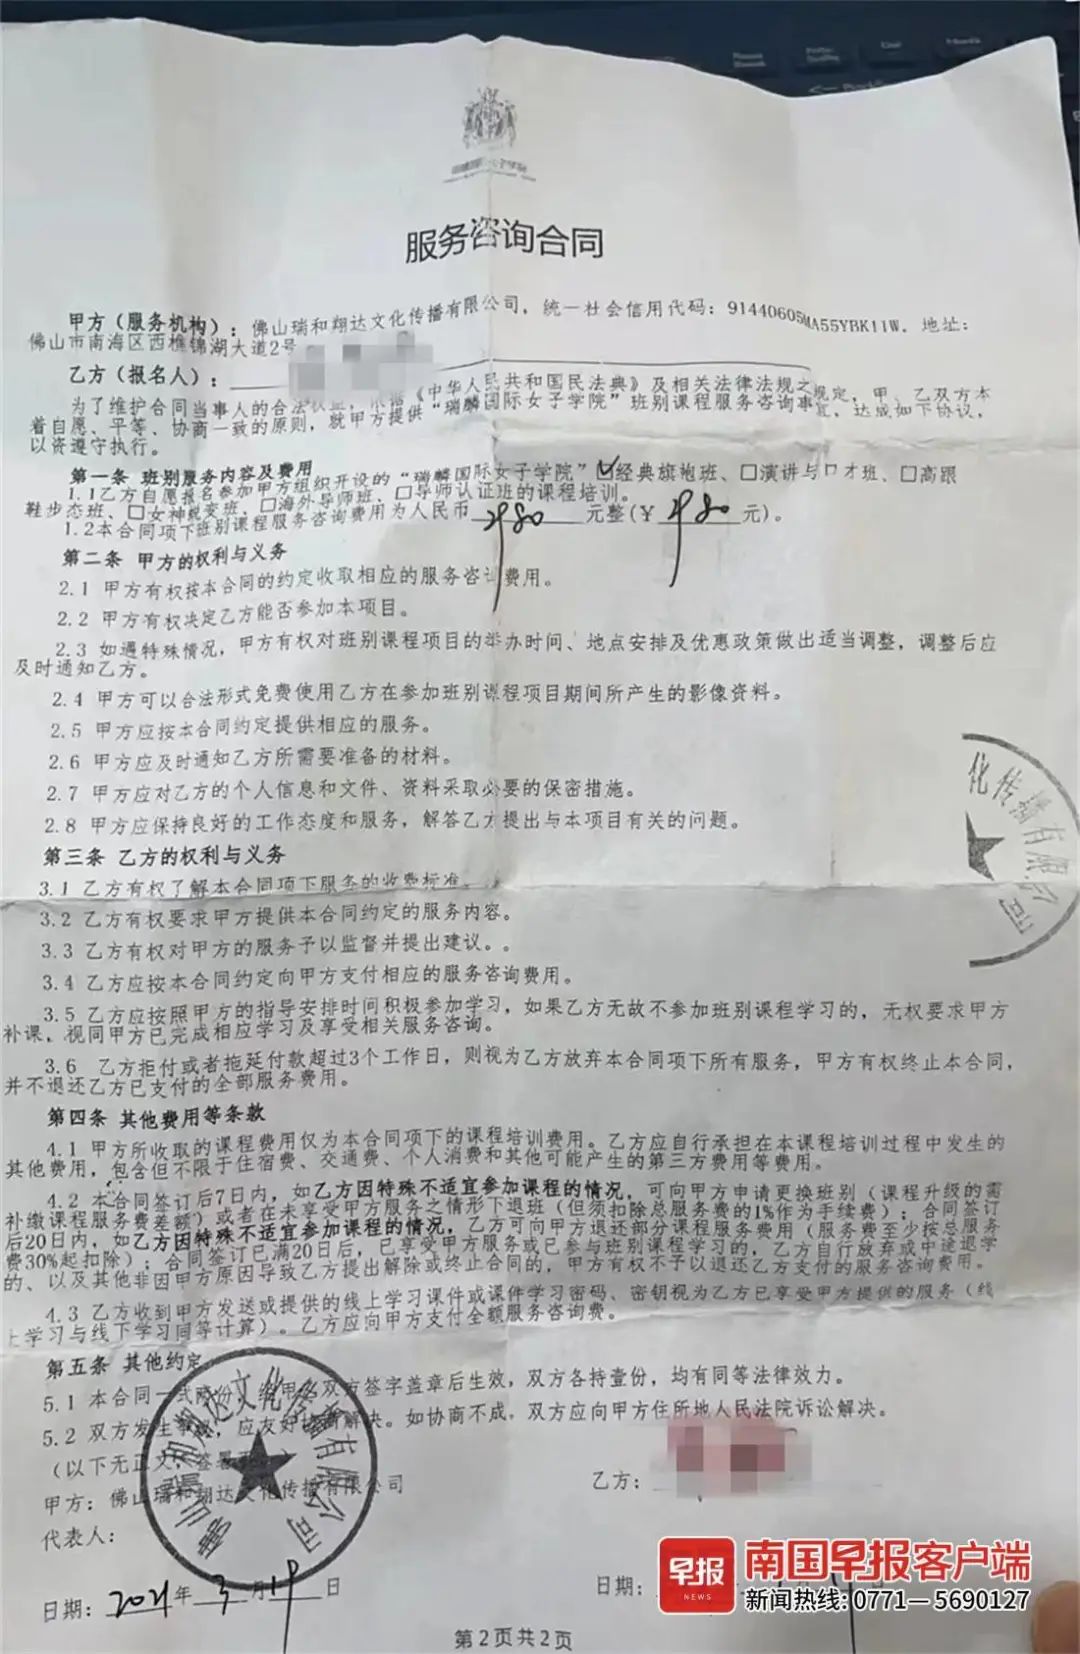 服务咨询合同
甲方（服务机构）：佛山瑞和翔达文化传播有限公司，统一社会信用代码：91440605MA55YBK11W。地址：
佛山市南海区西樵锦湖大道2号
乙方（报名人）：
为了维护合同当事人的合法权益，依据《中华人民共和国民法典》及相关法律法规之规定，甲、乙双方本
着自愿、平等、协商一致的原则，就甲方提供“瑞麟国际女子学院”班别课程服务咨询事宜，达成如下协议，
以资遵守执行。
第一条 班别服务内容及费用
1.1乙方自愿报名参加甲方组织开设的“瑞麟国际女子学院”☑经典旗袍班、□演讲与口才班、□高跟
鞋步态班、□女神蜕变班、□海外导师班、□导师认证班的课程培训。
1.2本合同项下班别课程服务咨询费用为人民币 元整(￥ 元)。
第二条 甲方的权利与义务
2.1 甲方有权按本合同的约定收取相应的服务咨询费用。
2.2 甲方有权决定乙方能否参加本项目。
2.3 如遇特殊情况，甲方有权对班别课程项目的举办时间、地点安排及优惠政策做出适当调整，调整后应
及时通知乙方。
2.4 甲方可以合法形式免费使用乙方在参加班别课程项目期间所产生的影像资料。
2.5 甲方应按本合同约定提供相应的服务。
2.6 甲方应及时通知乙方所需要准备的材料。
2.7 甲方应对乙方的个人信息和文件、资料采取必要的保密措施。
2.8 甲方应保持良好的工作态度和服务，解答乙方提出与本项目有关的问题。
第三条 乙方的权利与义务
3.1 乙方有权了解本合同项下服务的收费标准。
3.2 乙方有权要求甲方提供本合同约定的服务内容。
3.3 乙方有权对甲方的服务予以监督并提出建议。。
3.4 乙方应按本合同约定向甲方支付相应的服务咨询费用。
3.5 乙方应按照甲方的指导安排时间积极参加学习，如果乙方无故不参加班别课程学习的，无权要求甲方
补课，视同甲方已完成相应学习及享受相关服务咨询。
3.6 乙方拒付或者拖延付款超过3个工作日，则视为乙方放弃本合同项下所有服务，甲方有权终止本合同，
并不退还乙方已支付的全部服务费用。
第四条 其他费用等条款
4.1 甲方所收取的课程费用仅为本合同项下的课程培训费用。乙方应自行承担在本课程培训过程中发生的
其他费用，包含但不限于住宿费、交通费、个人消费和其他可能产生的第三方费用等费用。
4.2 本合同签订后7日内，如乙方因特殊不适宜参加课程的情况，可向甲方申请更换班别（课程升级的需
补缴课程服务费差额）或者在未享受甲方服务之情形下退班（但须扣除总服务费的1%作为手续费）；合同签订
后20日内，如乙方因特殊不适宜参加课程的情况，乙方可向甲方退还部分课程服务费用（服务费至少按总服务
费30%起扣除）；合同签订已满20日后，已享受甲方服务或已参与班别课程学习的，乙方自行放弃或中途退学
的、以及其他非因甲方原因导致乙方提出解除或终止合同的，甲方有权不予以退还乙方支付的服务咨询费用。
4.3 乙方收到甲方发送或提供的线上学习课件或课件学习密码、密钥视为乙方已享受甲方提供的服务（线
上学习与线下学习同等计算）。乙方应向甲方支付全额服务咨询费。
第五条 其他约定
5.1 本合同一式两份，经甲乙双方签字盖章后生效，双方各持壹份，均有同等法律效力。
5.2 双方发生争议，应友好协商解决。如协商不成，双方应向甲方住所地人民法院诉讼解决。
（以下无正文，签署
甲方：佛山瑞和翔达文化传播有限公司
乙方：
代表人：
日期：2021年3月19日
日期： 日
第2页共2页
化传播有限公司
佛山瑞和翔达文化传播有限公司
早报
NEWS
南国早报客户端
新闻热线:0771—5690127